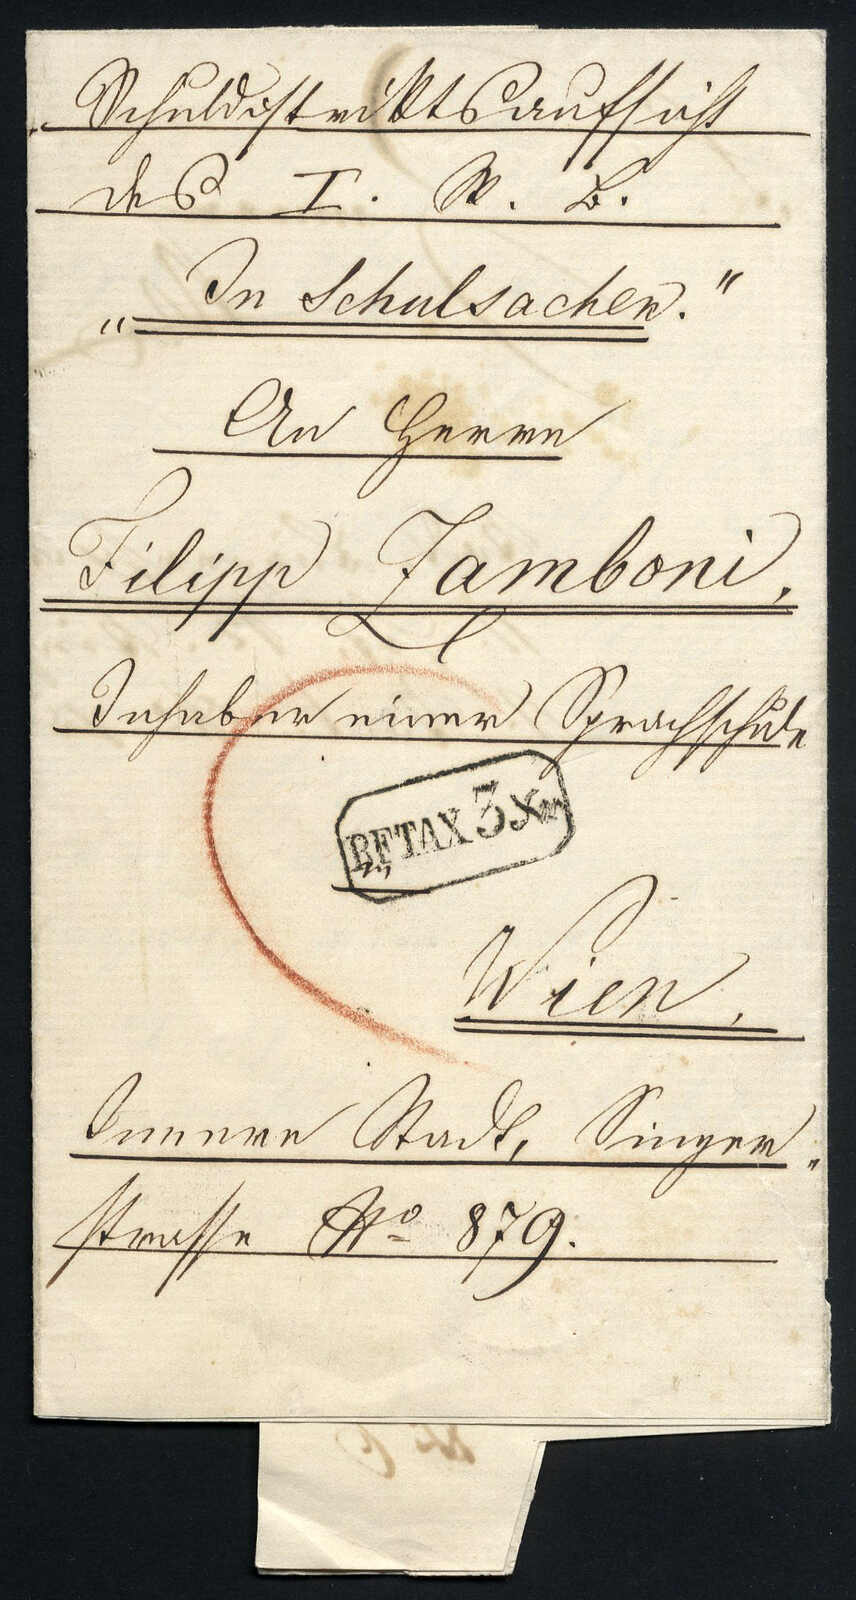 Schuldistriktsaufsicht
des I. W. B.
„In Schulsachen."
An Herrn
Filipp Zamboni,
Inhaber einer Sprachschule
BFTAX 3 Xr
Wien,
Innere Stadt, Singer„
strasse No 879.